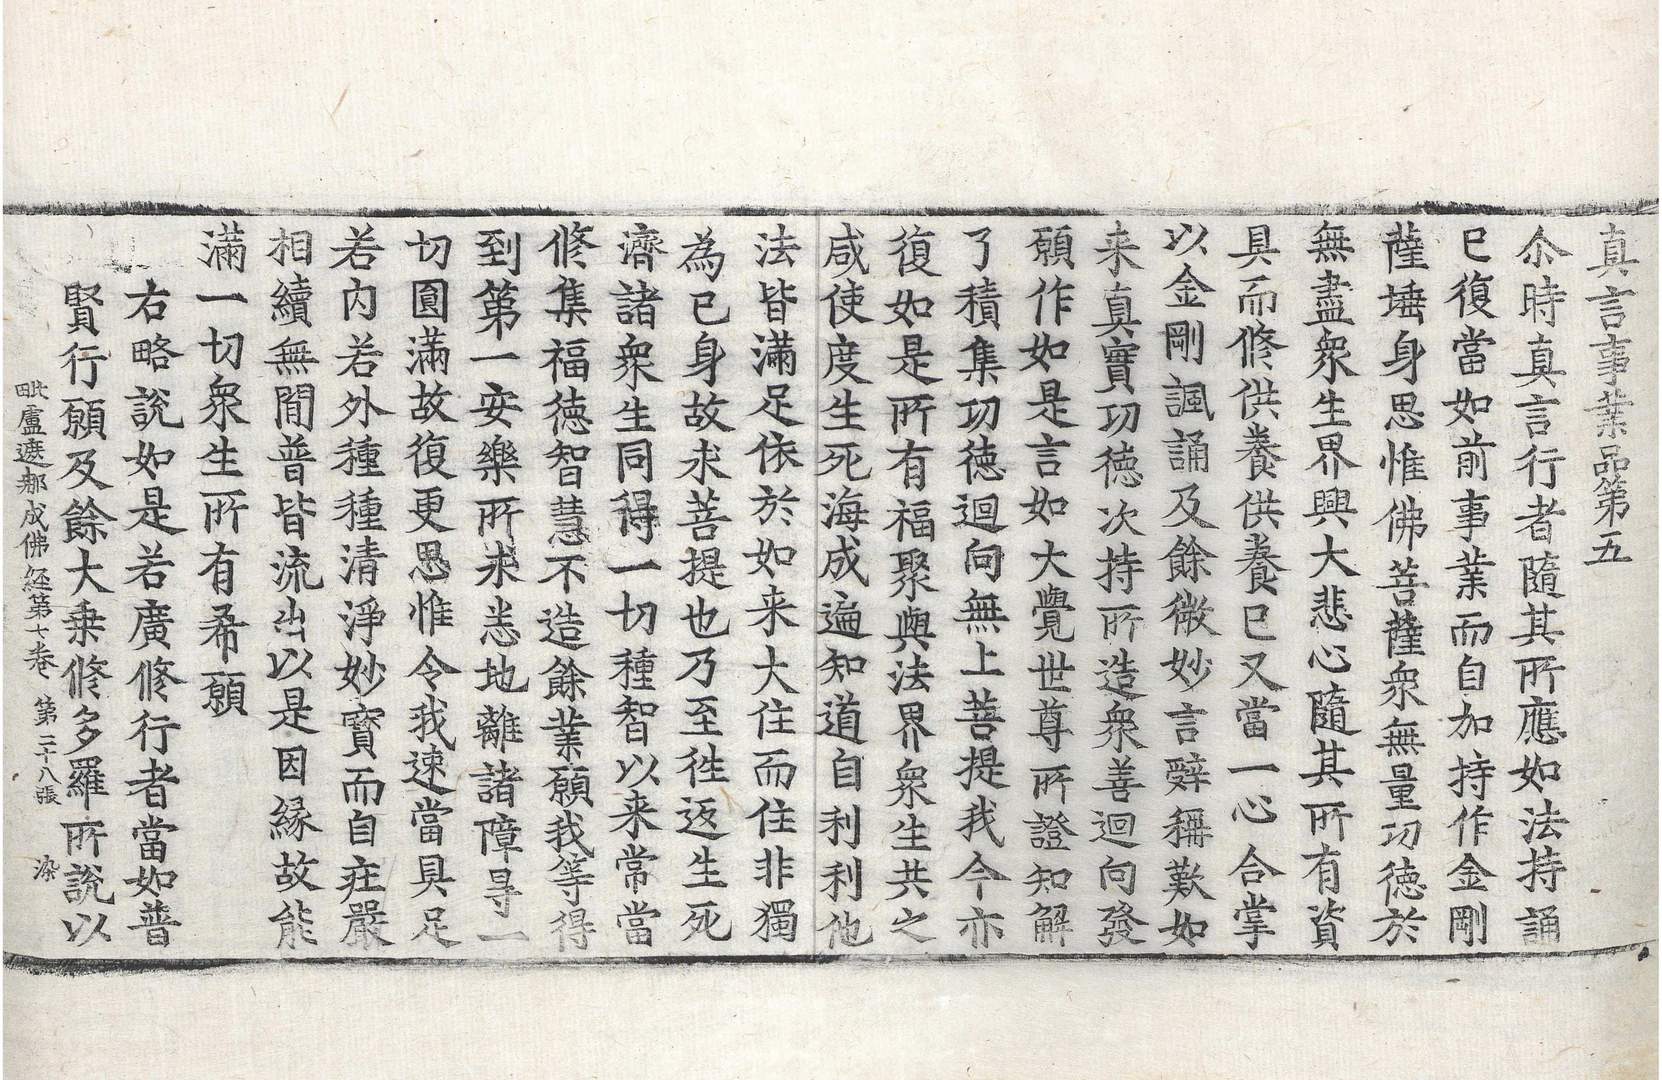 真言事業品第五
尒時真言行者隨其所應如法持誦
已復當如前事業而自加持作金剛
薩埵身思惟佛菩薩衆無量功徳於
無盡衆生界興大悲心隨其所有資
具而修供養供養已又當一心合掌
以金剛諷誦及餘微妙言辭稱歎如
来真實功徳次持所造衆善迴向發
願作如是言如大覺世尊所證知解
了積集功徳迴向無上菩提我今亦
復如是所有福聚與法界衆生共之
咸使度生死海成遍知道自利利他
法皆滿足依於如来大住而住非獨
為已身故求菩提也乃至徃返生死
濟諸衆生同得一切種智以来常當
修集福徳智慧不造餘業願我等得
到第一安樂所求悉地離諸障㝵一
切圓滿故復更思惟令我速當具足
若内若外種種清淨妙寳而自疘嚴
相續無間普皆流出以是因縁故能
滿一切衆生所有希願
右略說如是若廣修行者當如普
賢行願及餘大乗修多羅所說以
毗盧遮那成佛経第七卷 第三十八張 染